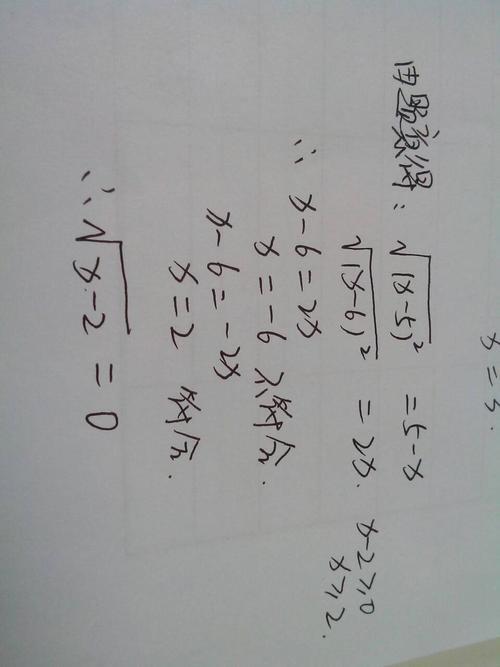 x = 3.
由题意得: √(x-5)² = 5-x
√(x-6)² = 2x. x-2≥0
x≥2.
∴ x-6=2x
x=-6 不符合.
x-6=-2x
x=2 符合.
∴ √x-2 = 0